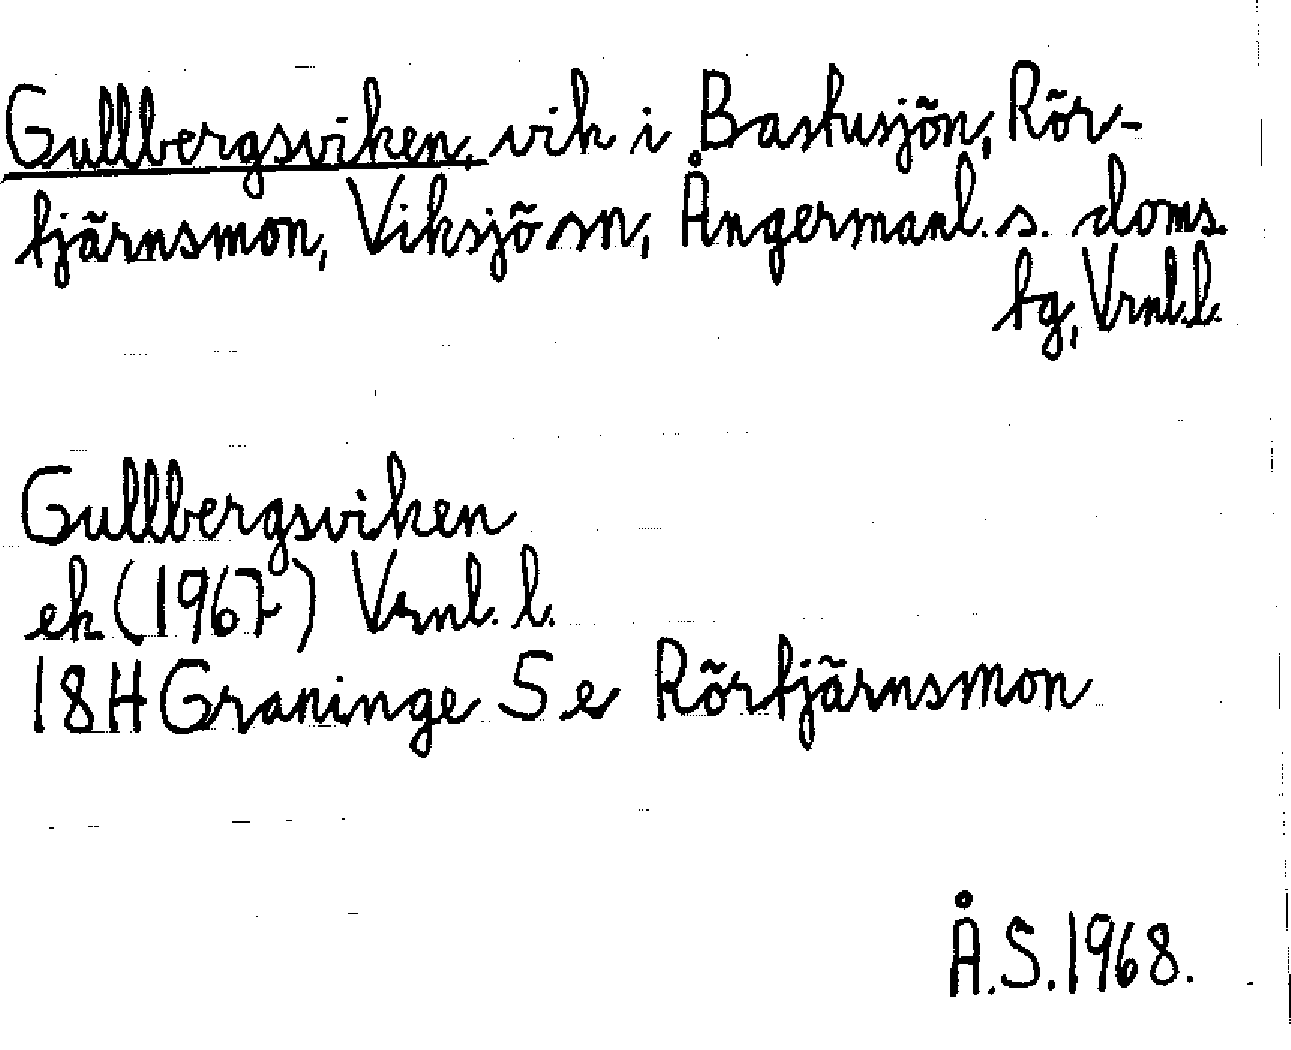 Gullbergsviken, vik i Bastusjön, Rör-
tjärnsmon, Viksjö sn, Ångermanl. s. doms.
tg, Vrnl.l.
Gullbergsviken
ek (1967) Vrnl. l.
18H Graninge S e Rörtjärnsmon
Å.S. 1968.